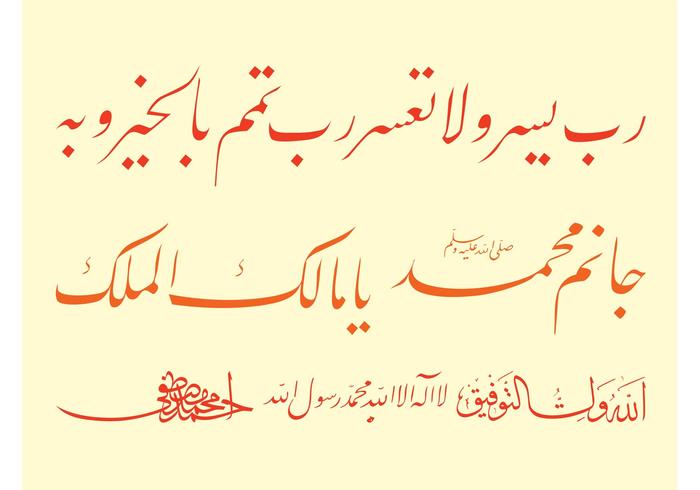 رب يسر ولا تعسر رب تمم بالخير و به
جانم محمد صلى الله عليه وسلم يا مالك الملك
الله ولي التوفيق لا اله الا الله محمد رسول الله احمد محمد مصطفى